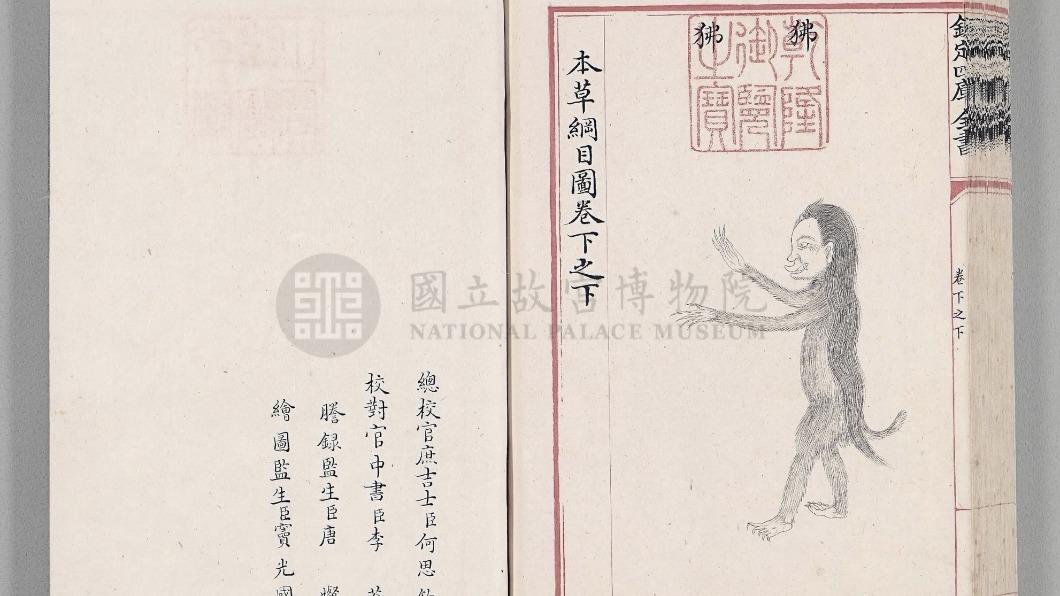 欽定四庫全書
卷下之下
狒狒
乾隆御覽之寶
本草綱目圖卷下之下
總校官庶吉士臣何思
校對官中書臣李
謄錄監生臣唐
繪圖監生臣竇光國
國立故宮博物院
NATIONAL PALACE MUSEUM